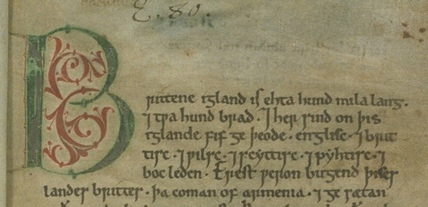 E. 80.
Brittene igland is ehta hund mila lang.
⁊ tpa hund brad. ⁊ her sind on þis
iglande fif ge þeode. englisc. ⁊ brit
tisc. ⁊ pilsc. ⁊ scyttisc. ⁊ pyhtisc. ⁊
boc leden. Erest peron bugend þises
landes brittes. þa coman of armenia. ⁊ ge sætan